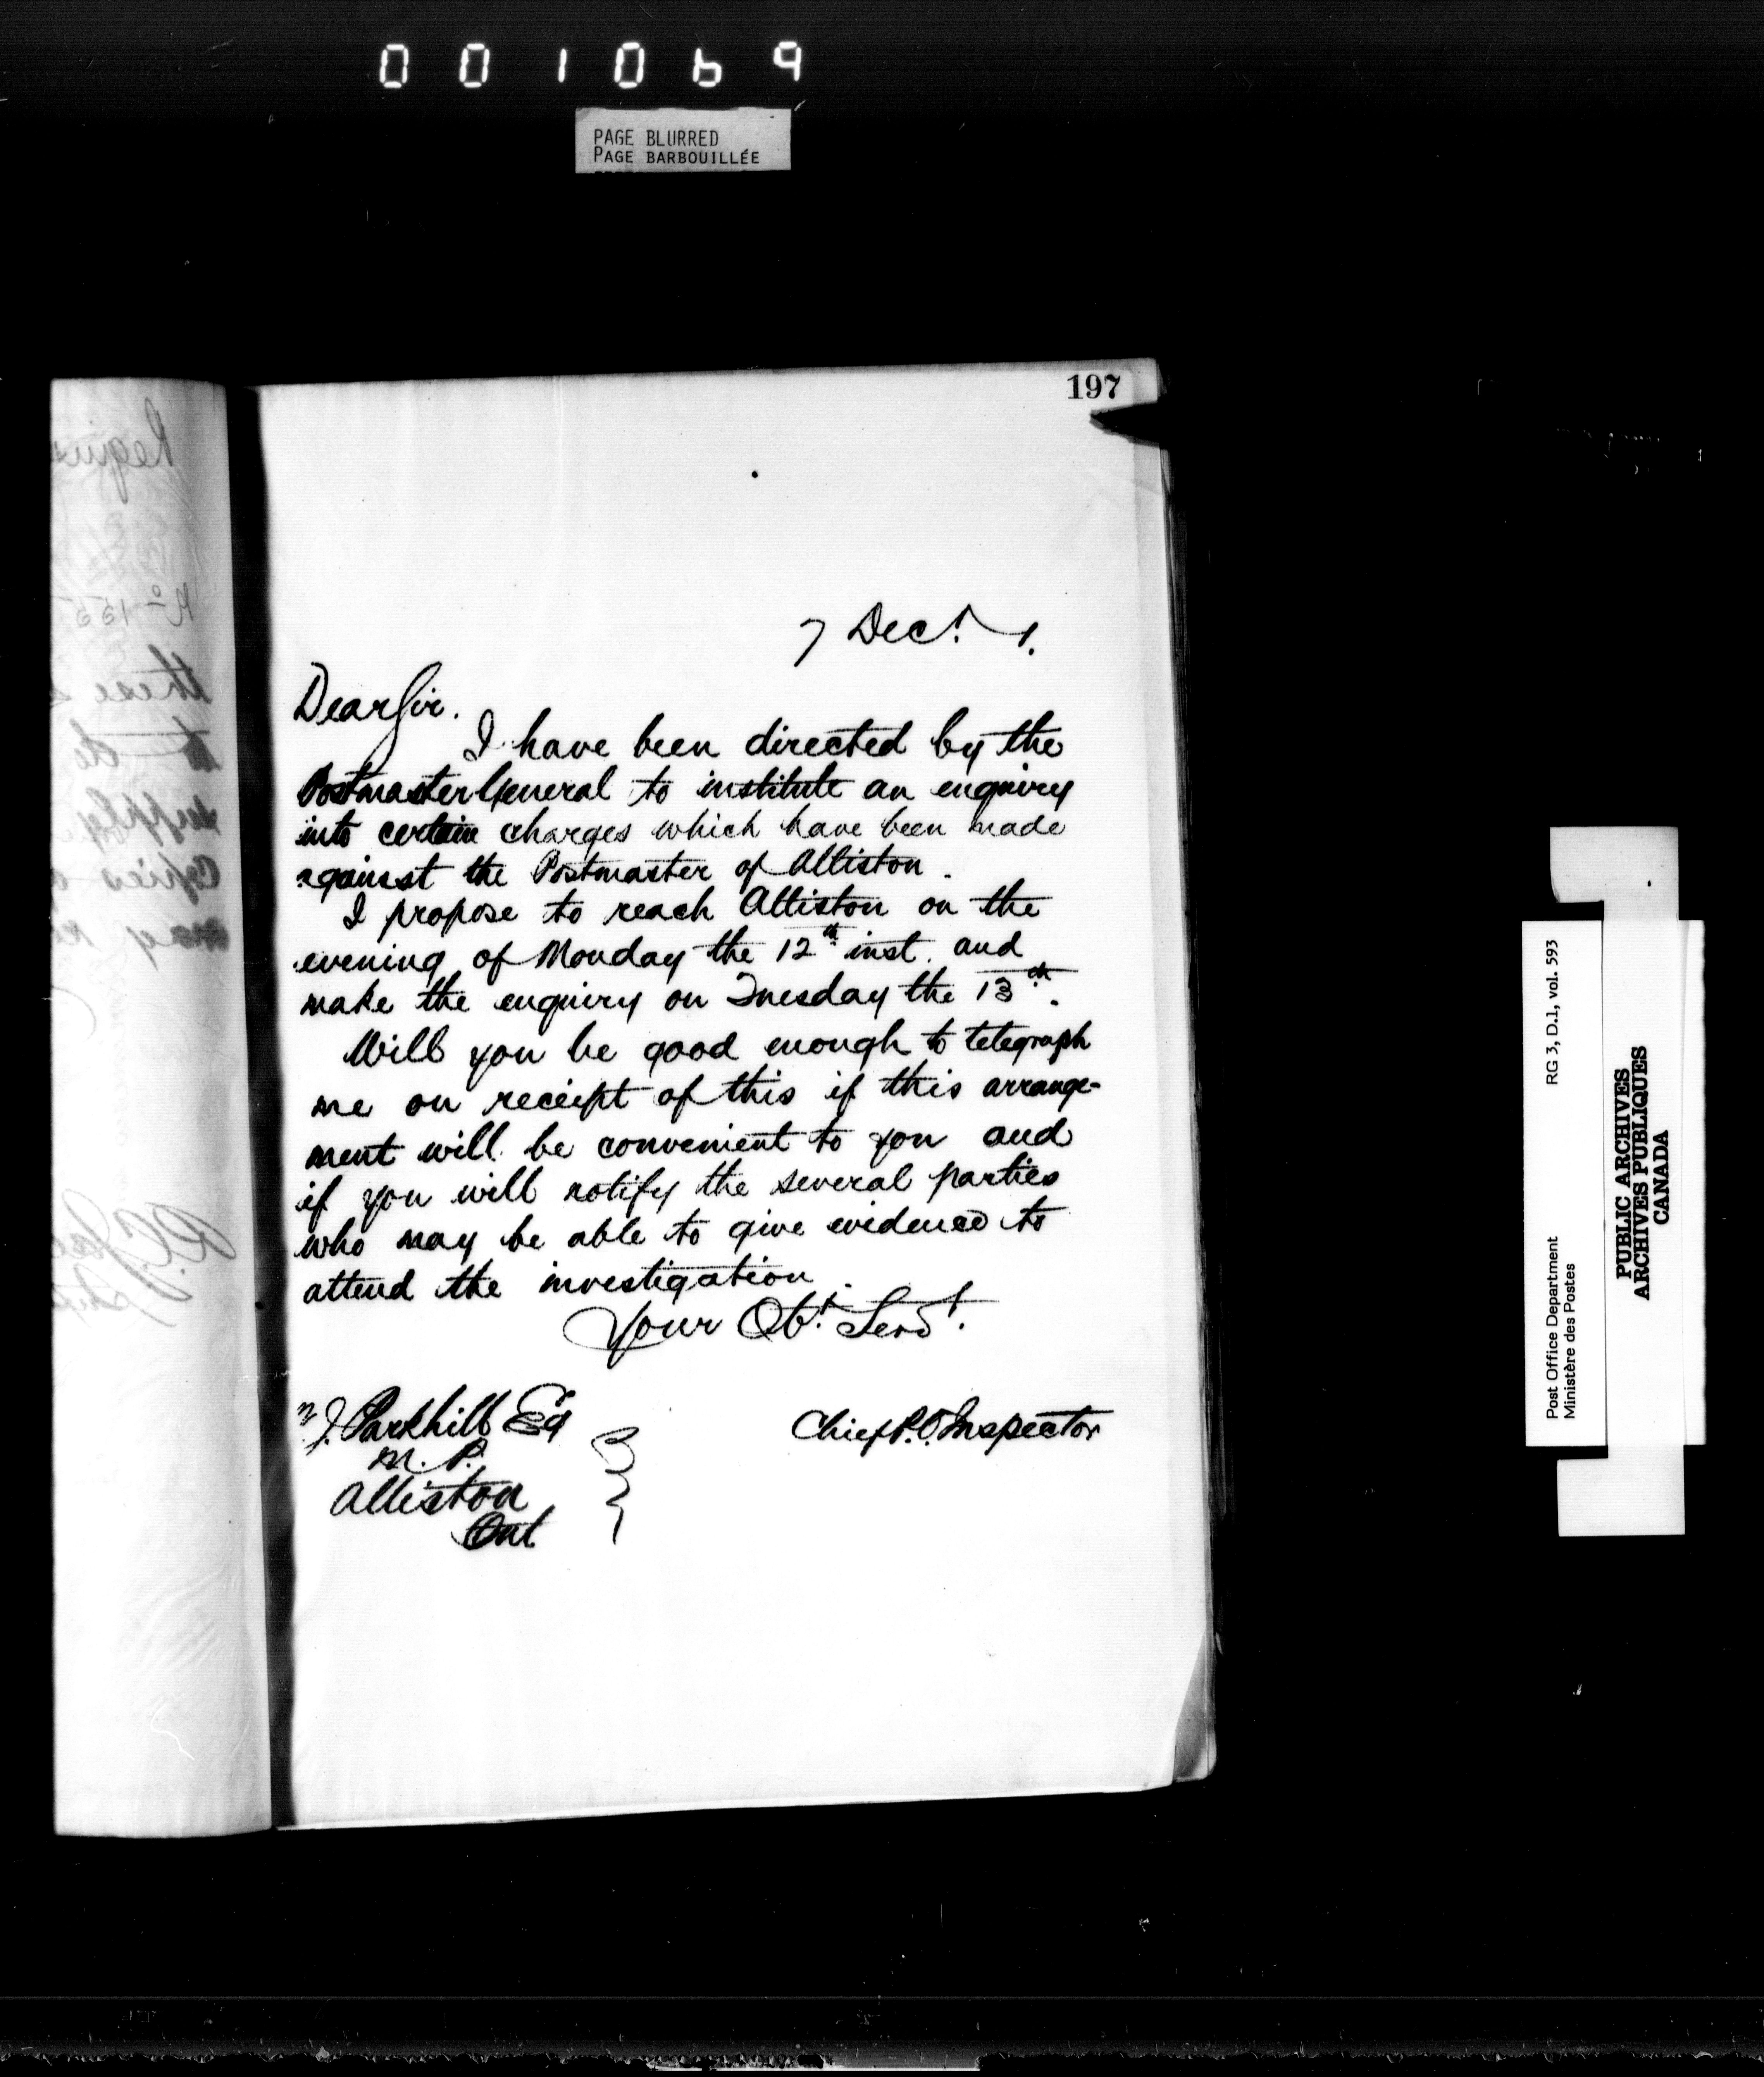 001069
PAGE BLURRED
PAGE BARBOUILLÉE
197
7 Dec.r 1.
Dear Sir.
I have been directed by the
Postmaster General to institute an enquiry
into certain charges which have been made
against the Postmaster of Alliston.
I propose to reach Alliston on the
evening of Monday the 12th inst. and
make the enquiry on Tuesday the 13th.
Will you be good enough to telegraph
me on receipt of this if this arrange-
ment will be convenient to you and
if you will notify the several parties
who may be able to give evidence to
attend the investigation.
Your Obt. Servt.
Chief P.O. Inspector
J. Parkhill Esq
M. P.
Alliston
Ont
Post Office Department RG 3, D.1, vol. 593
Ministère des Postes
PUBLIC ARCHIVES
ARCHIVES PUBLIQUES
CANADA